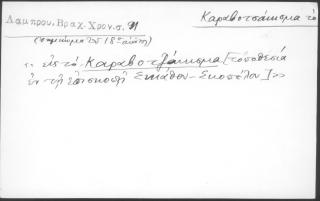 Λαμπρου, Βραχ. Χρον. σ. 71
Καραβοτσάκισμα τό
(σημείωμα τοῦ 18ου αἰώνος)
« εἰς τὸ Καραβοτζάκισμα [τοποθεσία
ἐν τῇ ἐπισκοπῇ Σκιάθου - Σκοπέλου]»